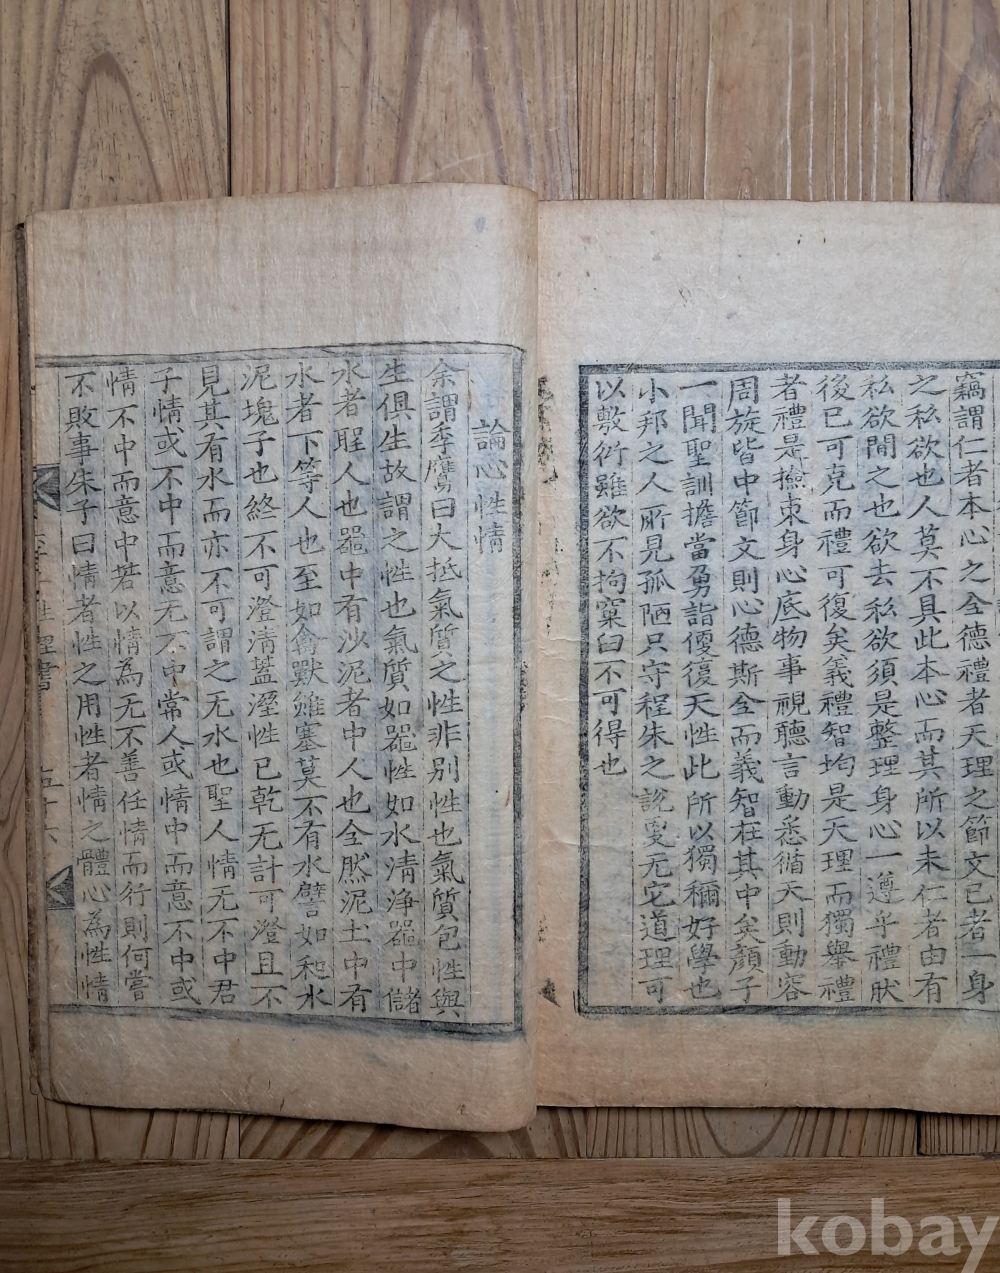 竊謂仁者本心之全德禮者天理之節文已者一身
之私欲也人莫不具此本心而其所以未仁者由有
私欲間之也欲去私欲須是整理身心一遵乎禮肰
後已可克而禮可復矣義禮智均是天理而獨舉禮
者禮是撿束身心底物事視聽言動悉循天則動容
周旋皆中節文則心德斯全而義智在其中矣顔子
一聞聖訓擔當勇詣優復天性此所以獨稱好學也
小邦之人所見孤陋只守程朱之說更无它道理可
以敷衍雖欲不拘窠臼不可得也
論心性情
余謂季鷹曰大抵氣質之性非別性也氣質包性與
生俱生故謂之性也氣質如器性如水清淨器中儲
水者聖人也器中有沙泥者中人也全肰泥土中有
水者下等人也至如禽獸雖塞莫不有水譬如和水
泥塊子也終不可澄清蓋溼性已乾无計可澄且不
見其有水而亦不可謂之无水也聖人情无不中君
子情或不中而意无不中常人或情中而意不中或
情不中而意中若以情為无不善任情而行則何嘗
不敗事朱子曰情者性之用性者情之體心為性情
性理書 五十六